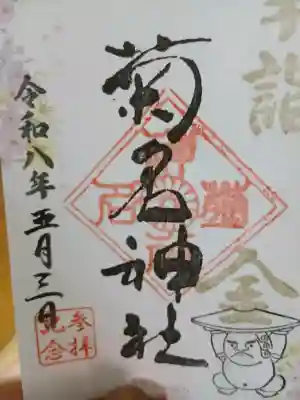 詣
金
菊名神社
令和八年五月三日
参拝
記念